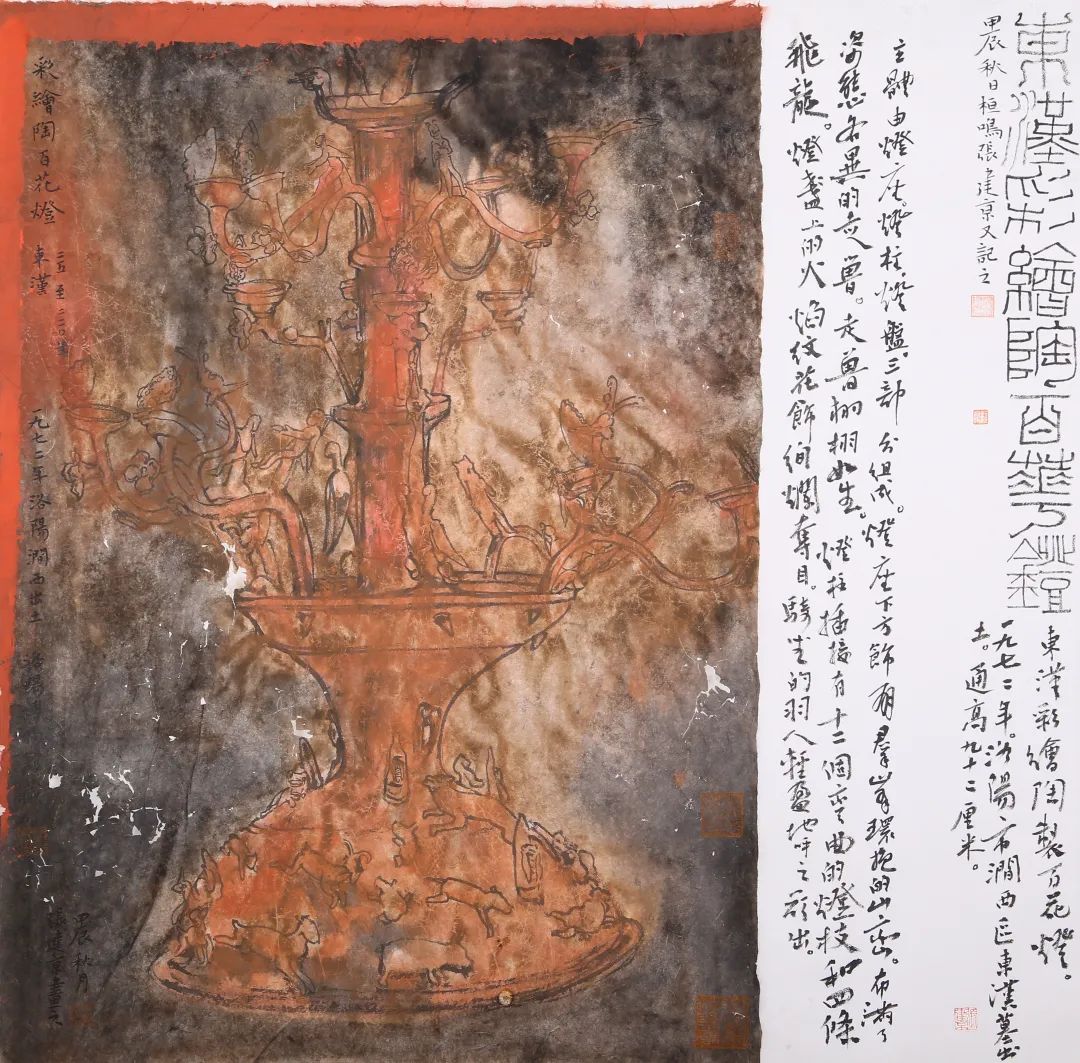 東漢彩繪陶百華鐙
東漢彩繪陶製百花燈。
一九七二年。洛陽市澗西区東漢墓出
土。通高九十二厘米。
甲辰秋日桓鳴張建京又記之
主體由燈座、燈柱、燈盤三部分組成。燈座下方飾有羣峯環抱的山巒。布滿了
姿態各異的人獸。走獸栩栩如生。燈柱插接有十二個彎曲的燈枝和四條
飛龍。燈盞上的火焰紋花飾絢爛奪目。騎坐的羽人輕盈地呼之欲出。
彩繪陶百花燈 東漢
二五至二二〇年
一九七二年洛陽澗西出土 洛陽
甲辰秋月
張建京畫之